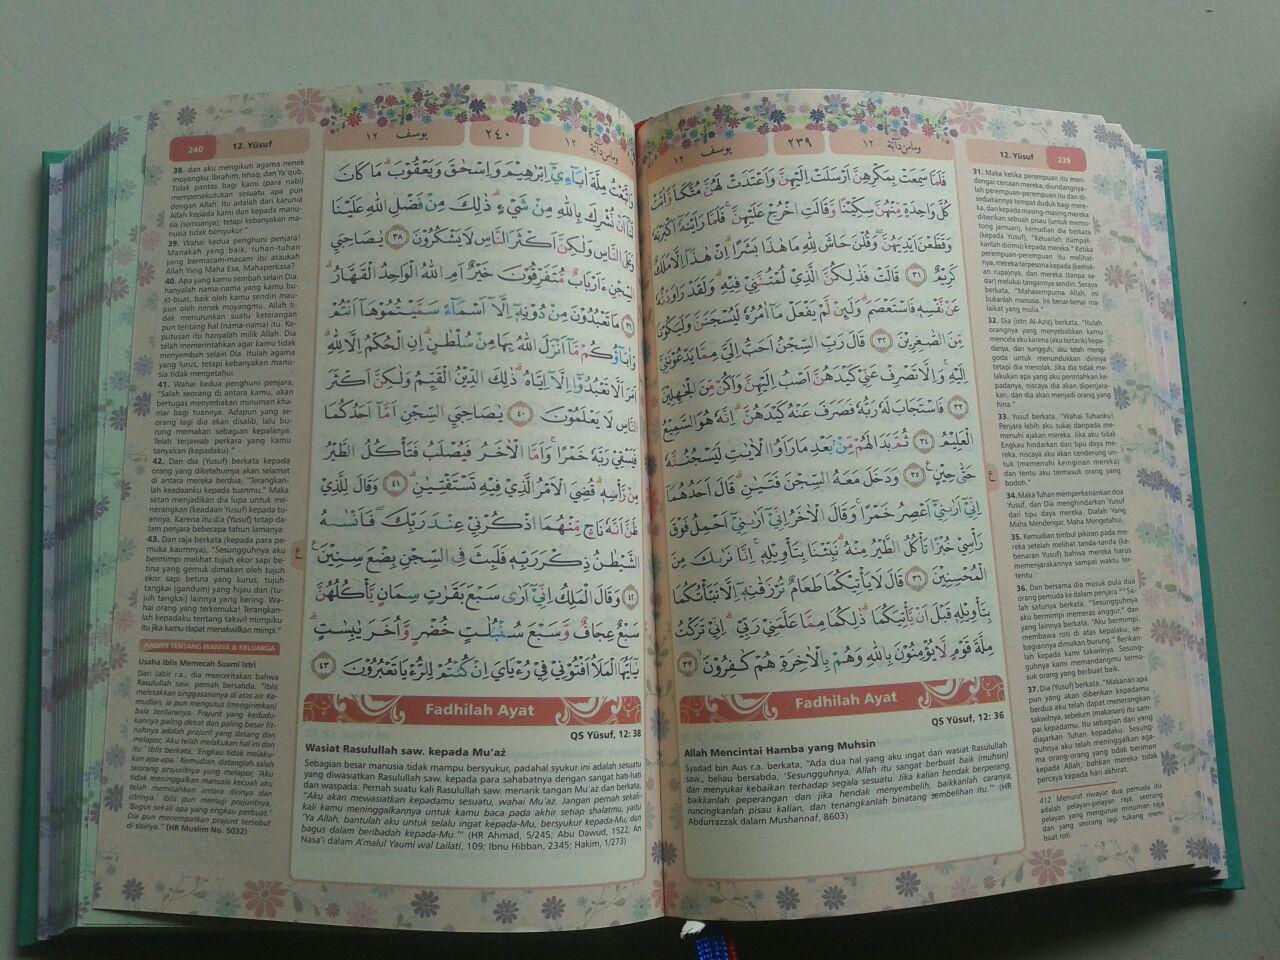 239
12. Yūsuf
وما من دآبّة ١٢
٢٣٩
يوسف ١٢
فَلَمَّا سَمِعَتْ بِمَكْرِهِنَّ اَرْسَلَتْ اِلَيْهِنَّ وَاَعْتَدَتْ لَهُنَّ مُتَّكَاً وَّاٰتَتْ
كُلَّ وَاحِدَةٍ مِّنْهُنَّ سِكِّيْنًا وَّقَالَتِ اخْرُجْ عَلَيْهِنَّ ۚ فَلَمَّا رَاَيْنَهٗٓ اَكْبَرْنَهٗ
وَقَطَّعْنَ اَيْدِيَهُنَّ وَقُلْنَ حَاشَ لِلّٰهِ مَا هٰذَا بَشَرًاۗ اِنْ هٰذَآ اِلَّا مَلَكٌ
كَرِيْمٌ ٣١ قَالَتْ فَذٰلِكُنَّ الَّذِيْ لُمْتُنَّنِيْ فِيْهِ ۗ وَلَقَدْ رَاوَدْتُّهٗ
عَنْ نَّفْسِهٖ فَاسْتَعْصَمَ ۗ وَلَىِٕنْ لَّمْ يَفْعَلْ مَآ اٰمُرُهٗ لَيُسْجَنَنَّ وَلَيَكُوْنًا
مِّنَ الصّٰغِرِيْنَ ٣٢ قَالَ رَبِّ السِّجْنُ اَحَبُّ اِلَيَّ مِمَّا يَدْعُوْنَنِيْٓ
اِلَيْهِ ۚ وَاِلَّا تَصْرِفْ عَنِّيْ كَيْدَهُنَّ اَصْبُ اِلَيْهِنَّ وَاَكُنْ مِّنَ الْجٰهِلِيْنَ
٣٣ فَاسْتَجَابَ لَهٗ رَبُّهٗ فَصَرَفَ عَنْهُ كَيْدَهُنَّ ۗ اِنَّهٗ هُوَ السَّمِيْعُ
الْعَلِيْمُ ٣٤ ثُمَّ بَدَا لَهُمْ مِّنْۢ بَعْدِ مَا رَاَوُا الْاٰيٰتِ لَيَسْجُنُنَّهٗ
حَتّٰى حِيْنٍ ٣٥ وَدَخَلَ مَعَهُ السِّجْنَ فَتَيٰنِ ۗ قَالَ اَحَدُهُمَآ
اِنِّيْٓ اَرٰىنِيْٓ اَعْصِرُ خَمْرًا ۚ وَقَالَ الْاٰخَرُ اِنِّيْٓ اَرٰىنِيْٓ اَحْمِلُ فَوْقَ
رَأْسِيْ خُبْزًا تَأْكُلُ الطَّيْرُ مِنْهُ ۗ نَبِّئْنَا بِتَأْوِيْلِهٖ ۚ اِنَّا نَرٰىكَ مِنَ
الْمُحْسِنِيْنَ ٣٦ قَالَ لَا يَأْتِيْكُمَا طَعَامٌ تُرْزَقٰنِهٖٓ اِلَّا نَبَّأْتُكُمَا
بِتَأْوِيْلِهٖ قَبْلَ اَنْ يَّأْتِيَكُمَا ۗ ذٰلِكُمَا مِمَّا عَلَّمَنِيْ رَبِّيْ ۗ اِنِّيْ تَرَكْتُ
مِلَّةَ قَوْمٍ لَّا يُؤْمِنُوْنَ بِاللّٰهِ وَهُمْ بِالْاٰخِرَةِ هُمْ كٰفِرُوْنَ ٣٧
Fadhilah Ayat
QS Yūsuf, 12: 36
Allah Mencintai Hamba yang Muhsin
Syadad bin Aus r.a. berkata, "Ada dua hal yang aku ingat dari wasiat Rasulullah
saw., beliau bersabda, 'Sesungguhnya, Allah itu sangat berbuat baik (muhsin)
dan menyukai kebaikan terhadap segala sesuatu. Jika kalian hendak berperang,
baikkanlah peperangan dan jika hendak menyembelih, baikkanlah caranya,
runcingkanlah pisau kalian, dan tenangkanlah binatang sembelihan itu.'" (HR
Abdurrazzak dalam Mushannaf, 8603)
31. Maka ketika perempuan itu men-
dengar cercaan mereka, diundangnya-
lah perempuan-perempuan itu dan di-
sediakannya tempat duduk bagi mere-
ka, dan kepada masing-masing mereka
diberikan sebuah pisau (untuk memo-
tong jamuan), kemudian dia berkata
(kepada Yusuf), "Keluarlah (tampak-
kanlah dirimu) kepada mereka." Ketika
perempuan-perempuan itu melihat-
nya, mereka terpesona kepada (keelok-
an rupa)nya, dan mereka (tanpa sa-
dar) melukai tangannya sendiri. Seraya
berkata, "Mahasempurna Allah, ini
bukanlah manusia. Ini benar-benar ma-
laikat yang mulia."
32. Dia (istri Al-Aziz) berkata, "Itulah
orangnya yang menyebabkan kamu
mencela aku karena (aku tertarik) kepa-
danya, dan sungguh, aku telah meng-
goda untuk menundukkan dirinya
tetapi dia menolak. Jika dia tidak me-
lakukan apa yang aku perintahkan ke-
padanya, niscaya dia akan dipenjara-
kan, dan dia akan menjadi orang yang
hina."
33. Yusuf berkata, "Wahai Tuhanku!
Penjara lebih aku sukai daripada me-
menuhi ajakan mereka. Jika aku tidak
Engkau hindarkan dari tipu daya me-
reka, niscaya aku akan cenderung un-
tuk (memenuhi keinginan mereka)
dan tentu aku termasuk orang yang
bodoh."
34. Maka Tuhan memperkenankan doa
Yusuf, dan Dia menghindarkan Yusuf
dari tipu daya mereka. Dialah Yang
Maha Mendengar, Maha Mengetahui.
35. Kemudian timbul pikiran pada me-
reka setelah melihat tanda-tanda (ke-
benaran Yusuf) bahwa mereka harus
memenjarakannya sampai waktu ter-
tentu.
36. Dan bersama dia masuk pula dua
orang pemuda ke dalam penjara. Sa-
lah satunya berkata, "Sesungguhnya
aku bermimpi memeras anggur," dan
yang lainnya berkata, "Aku bermimpi,
membawa roti di atas kepalaku, se-
bagiannya dimakan burung." Berikan-
lah kepada kami takwilnya. Sesung-
guhnya kami memandangmu terma-
suk orang yang berbuat baik.
37. Dia (Yusuf) berkata, "Makanan apa
pun yang akan diberikan kepadamu
berdua aku telah dapat menerangkan
takwilnya, sebelum (makanan) itu sam-
pai kepadamu. Itu sebagian dari yang
diajarkan Tuhan kepadaku. Sesung-
guhnya aku telah meninggalkan aga-
ma orang-orang yang tidak beriman
kepada Allah, bahkan mereka tidak
percaya kepada hari akhirat.
412. Menurut riwayat dua pemuda itu
adalah pelayan-pelayan raja, seorang
pelayan yang mengurus minuman raja
dan yang seorang lagi tukang mem-
buat roti.
240
12. Yūsuf
يوسف ١٢
٢٤٠
وما من دآبّة ١٢
وَاتَّبَعْتُ مِلَّةَ اٰبَاۤءِيْٓ اِبْرٰهِيْمَ وَاِسْحٰقَ وَيَعْقُوْبَ ۗ مَا كَانَ
لَنَآ اَنْ نُّشْرِكَ بِاللّٰهِ مِنْ شَيْءٍ ۗ ذٰلِكَ مِنْ فَضْلِ اللّٰهِ عَلَيْنَا
وَعَلَى النَّاسِ وَلٰكِنَّ اَكْثَرَ النَّاسِ لَا يَشْكُرُوْنَ ٣٨ يٰصَاحِبَيِ
السِّجْنِ ءَاَرْبَابٌ مُّتَفَرِّقُوْنَ خَيْرٌ اَمِ اللّٰهُ الْوَاحِدُ الْقَهَّارُ
٣٩ مَا تَعْبُدُوْنَ مِنْ دُوْنِهٖٓ اِلَّآ اَسْمَاۤءً سَمَّيْتُمُوْهَآ اَنْتُمْ
وَاٰبَاۤؤُكُمْ مَّآ اَنْزَلَ اللّٰهُ بِهَا مِنْ سُلْطٰنٍ ۗ اِنِ الْحُكْمُ اِلَّا لِلّٰهِ ۗ
اَمَرَ اَلَّا تَعْبُدُوْٓا اِلَّآ اِيَّاهُ ۗ ذٰلِكَ الدِّيْنُ الْقَيِّمُ وَلٰكِنَّ اَكْثَرَ
النَّاسِ لَا يَعْلَمُوْنَ ٤٠ يٰصَاحِبَيِ السِّجْنِ اَمَّآ اَحَدُكُمَا
فَيَسْقِيْ رَبَّهٗ خَمْرًا ۚ وَاَمَّا الْاٰخَرُ فَيُصْلَبُ فَتَأْكُلُ الطَّيْرُ
مِنْ رَّأْسِهٖ ۗ قُضِيَ الْاَمْرُ الَّذِيْ فِيْهِ تَسْتَفْتِيٰنِ ۗ ٤١ وَقَالَ لِلَّذِيْ
ظَنَّ اَنَّهٗ نَاجٍ مِّنْهُمَا اذْكُرْنِيْ عِنْدَ رَبِّكَ ۖ فَاَنْسٰىهُ
الشَّيْطٰنُ ذِكْرَ رَبِّهٖ فَلَبِثَ فِى السِّجْنِ بِضْعَ سِنِيْنَ ࣖ
٤٢ وَقَالَ الْمَلِكُ اِنِّيْٓ اَرٰى سَبْعَ بَقَرٰتٍ سِمَانٍ يَّأْكُلُهُنَّ
سَبْعٌ عِجَافٌ وَّسَبْعَ سُنْۢبُلٰتٍ خُضْرٍ وَّاُخَرَ يٰبِسٰتٍ ۗ
يٰٓاَيُّهَا الْمَلَاُ اَفْتُوْنِيْ فِيْ رُءْيَايَ اِنْ كُنْتُمْ لِلرُّءْيَا تَعْبُرُوْنَ ٤٣
Fadhilah Ayat
QS Yūsuf, 12: 38
Wasiat Rasulullah saw. kepada Mu'aż
Sebagian besar manusia tidak mampu bersyukur, padahal syukur ini adalah sesuatu
yang diwasiatkan Rasulullah saw. kepada para sahabatnya dengan sangat hati-hati
dan waspada. Pernah suatu kali Rasulullah saw. menarik tangan Mu'aż dan berkata,
"'Aku akan mewasiatkan kepadamu sesuatu, wahai Mu'aż. Jangan pernah sekali-
kali kamu meninggalkannya untuk kamu baca pada akhir setiap shalatmu, yaitu
'Ya Allah, bantulah aku untuk selalu ingat kepada-Mu, bersyukur kepada-Mu, dan
bagus dalam beribadah kepada-Mu.'" (HR Ahmad, 5/245; Abu Dawud, 1522; An
Nasa'i dalam A'malul Yaumi wal Lailati, 109; Ibnu Hibban, 2345; Hakim, 1/273)
38. dan aku mengikuti agama nenek
moyangku: Ibrahim, Ishaq, dan Ya'qub.
Tidak pantas bagi kami (para nabi)
mempersekutukan sesuatu apa pun
dengan Allah. Itu adalah dari karunia
Allah kepada kami dan kepada manu-
sia (semuanya); tetapi kebanyakan ma-
nusia tidak bersyukur."
39. Wahai kedua penghuni penjara!
Manakah yang baik, tuhan-tuhan
yang bermacam-macam itu ataukah
Allah Yang Maha Esa, Mahaperkasa?
40. Apa yang kamu sembah selain Dia,
hanyalah nama-nama yang kamu bu-
at-buat, baik oleh kamu sendiri mau-
pun oleh nenek moyangmu. Allah ti-
dak menurunkan suatu keterangan
pun tentang hal (nama-nama) itu. Ke-
putusan itu hanyalah milik Allah. Dia
telah memerintahkan agar kamu tidak
menyembah selain Dia. Itulah agama
yang lurus, tetapi kebanyakan manu-
sia tidak mengetahui.
41. Wahai kedua penghuni penjara,
"Salah seorang di antara kamu, akan
bertugas menyediakan minuman kha-
mar bagi tuannya. Adapun yang se-
orang lagi dia akan disalib, lalu bu-
rung memakan sebagian kepalanya.
Telah terjawab perkara yang kamu
tanyakan (kepadaku)."
42. Dan dia (Yusuf) berkata kepada
orang yang diketahuinya akan selamat
di antara mereka berdua, "Terangkan-
lah keadaanku kepada tuanmu." Maka
setan menjadikan dia lupa untuk me-
nerangkan (keadaan Yusuf) kepada tu-
annya. Karena itu dia (Yusuf) tetap da-
lam penjara beberapa tahun lamanya.
43. Dan raja berkata (kepada para pe-
muka kaumnya), "Sesungguhnya aku
bermimpi melihat tujuh ekor sapi be-
tina yang gemuk dimakan oleh tujuh
ekor sapi betina yang kurus; tujuh
tangkai (gandum) yang hijau dan (tu-
juh tangkai) lainnya yang kering. Wa-
hai orang yang terkemuka! Terangkan-
lah kepadaku tentang takwil mimpiku
itu jika kamu dapat menakwilkan mimpi."
HADITS TENTANG WANITA & KELUARGA
Usaha Iblis Memecah Suami Istri
Dari Jabir r.a., dia menceritakan bahwa
Rasulullah saw. pernah bersabda, "Iblis
meletakkan singgasananya di atas air. Ke-
mudian, ia pun mengutus (mengirimkan)
bala tentaranya. Prajurit yang kedudu-
kannya paling dekat dan paling besar fit-
nahnya adalah prajurit yang datang dan
melapor, 'Aku telah melakukan hal ini dan
itu.' Iblis berkata, 'Engkau tidak melaku-
kan apa-apa.' Kemudian, datanglah salah
seorang prajurit yang melapor, 'Aku
tidak meninggalkan manusia kecuali aku
telah memisahkan antara dirinya dan
istrinya.' Iblis pun memuji prajuritnya,
'Bagus sekali apa yang engkau perbuat.'
Dia pun menempatkan prajurit tersebut
di sisinya." (HR Muslim No. 5032)